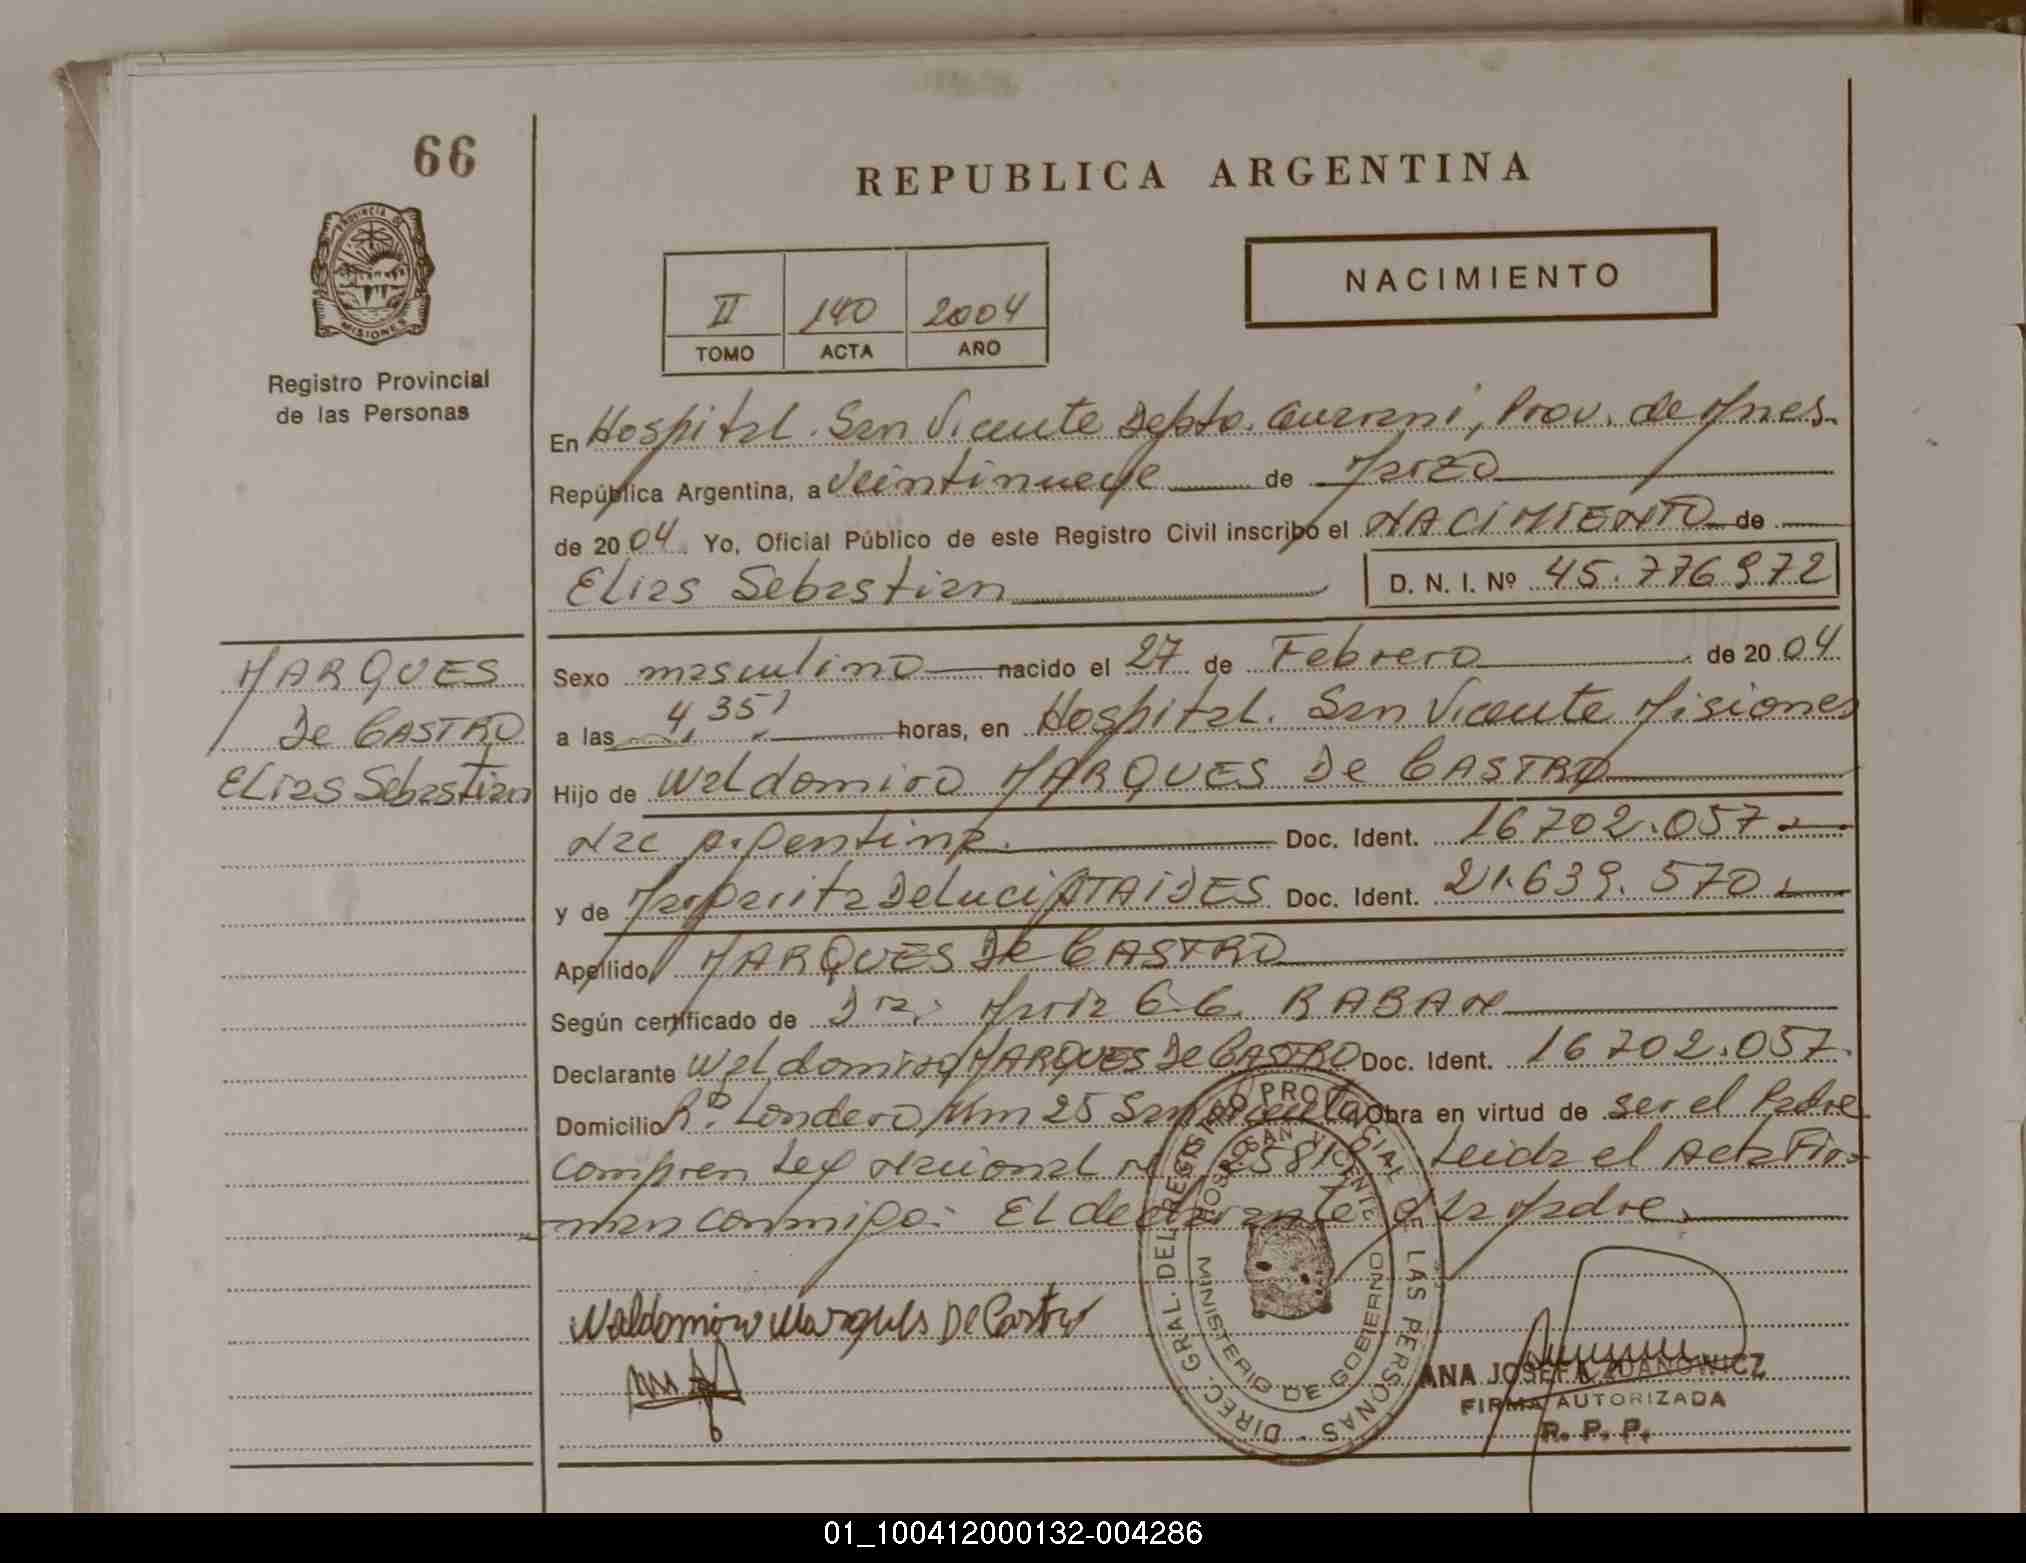 66
REPUBLICA ARGENTINA
PROVINCIA DE
MISIONES
Registro Provincial
de las Personas
II 140 2004
TOMO ACTA AÑO
NACIMIENTO
En Hospital. San Vicente Depto. Guarani, Prov. de Mnes.
República Argentina, a Veintinueve de Marzo
de 2004. Yo, Oficial Público de este Registro Civil inscribo el NACIMIENTO de
Elias Sebastian D. N. I. Nº 45.776972
MARQUES
De CASTRO
Elias Sebastian
Sexo masculino nacido el 27 de Febrero de 2004
a las 4,35' horas, en Hospital. San Vicente Misiones
Hijo de Waldomiro MARQUES De CASTRO
Nac Argentina. Doc. Ident. 16702.057
y de Margarita DeLuci ATAIDES Doc. Ident. 21.639.570
Apellido MARQUES De CASTRO
Según certificado de Dra. Maria G.G. RABAN
Declarante Waldomiro MARQUES De CASTRO Doc. Ident. 16702.057.
Domicilio Londero Km 25 San Vicente Obra en virtud de ser el Padre
Compren Ley Nacional Leida el Acta Fir
man conmigo: El declarante y la Madre.
Waldomiro Marques De Castro
DIREC. GRAL. DEL REGISTRO PROVINCIAL DE LAS PERSONAS -
HOSP. SAN VICENTE
MINISTERIO DE GOBIERNO
ANA JOSEFA ZDANOWICZ
FIRMA AUTORIZADA
R. P. P.
01_100412000132-004286